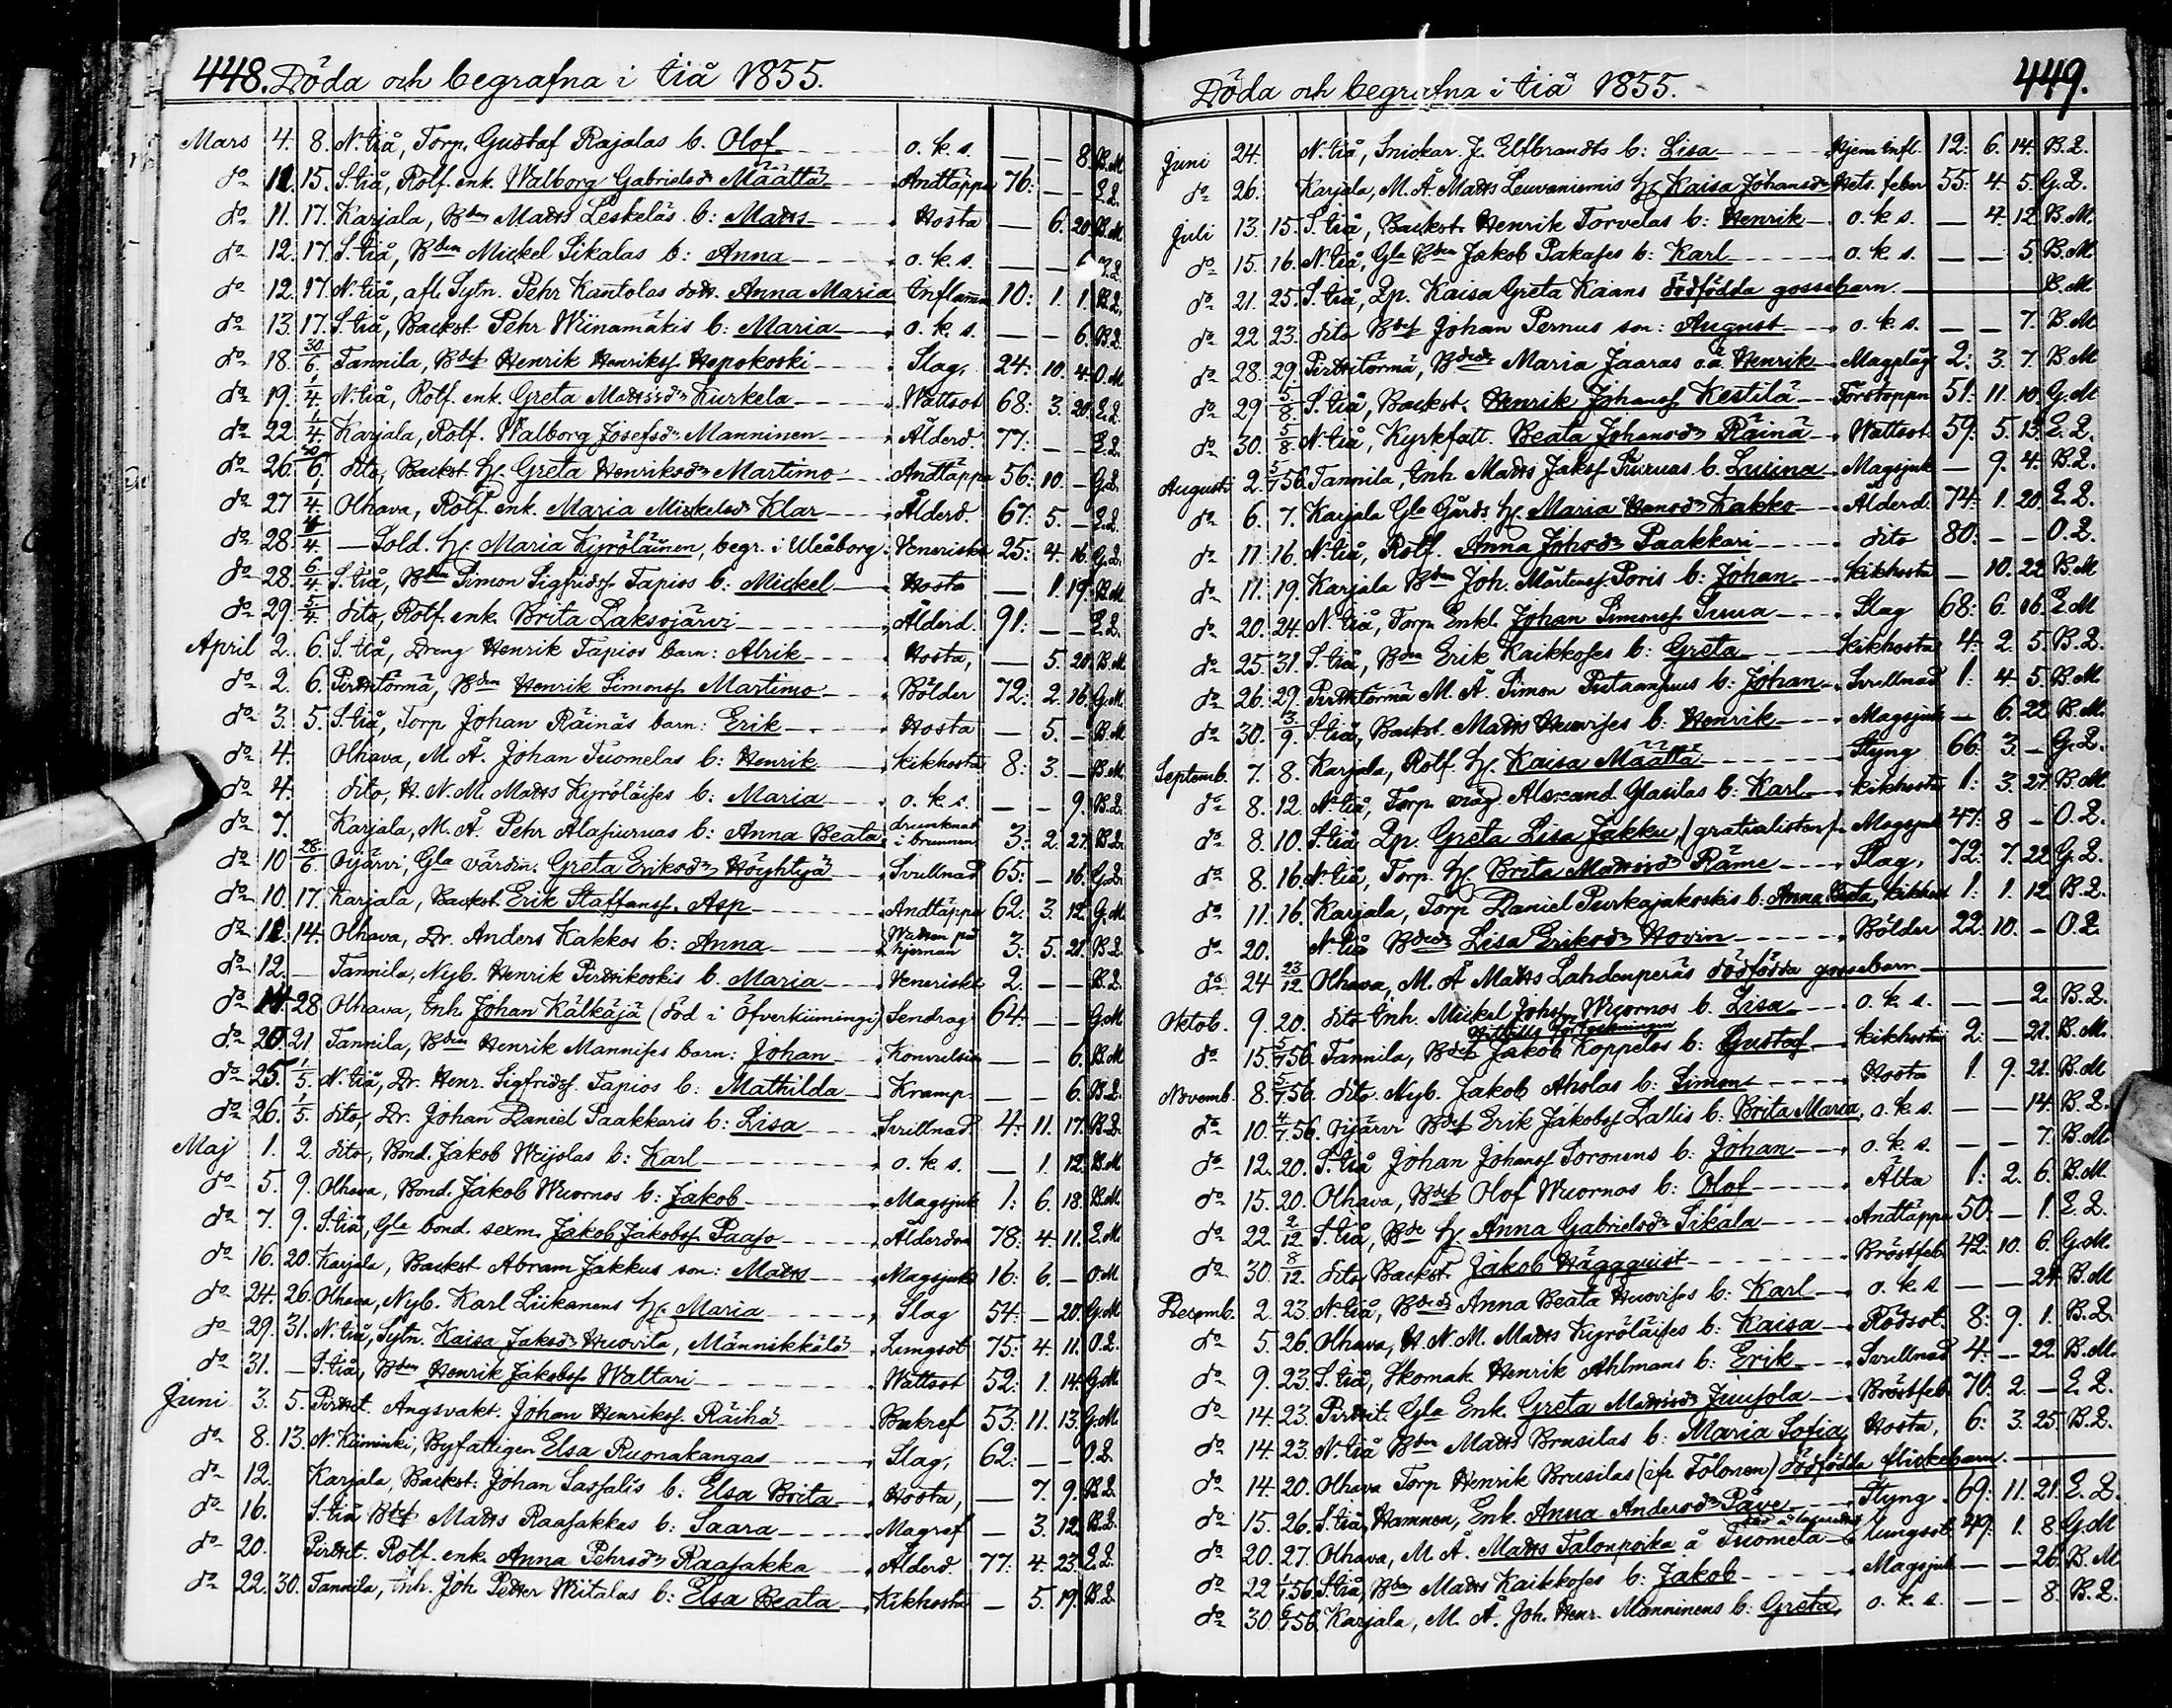 448. Döda och begrafna i Iiå 1855.
Mars 4. 8. N. Iiå, Torp. Gustaf Rajalas b. Olof o. k. s. — — 8. B.M.
do 11. 15. S. Iiå, Rotf. enk. Walborg Gabrielsdr Määttä Andtäppa 76: — — E.Q.
do 11. 17. Karjala, Bden Matts Leskeläs b: Matts Hosta — 6. 20. B.M.
do 12. 17. S. Iiå, Bden Mickel Sikalas b: Anna o. k. s. — — B.Q.
do 12. 17. N. Iiå, afl. Sytn. Pehr Kantolas dotr. Anna Maria Inflama 10: 1. 1. B.Q.
do 13. 17. S. Iiå, Backst. Pehr Wiinamäkis b: Maria o. k. s. — — 6. B.Q.
do 18. 30/6. Tannila, Bdes Henrik Henrikss. Hepokoski Slag, 24: 10. 4. O.M
do 19. 1/4. N. Iiå, Rotf. enk. Greta Mattsdr Kurkela Wattsot 68: 3. 20. E.Q.
do 22. 1/4. Karjala, Rotf. Walborg Josefsdr Manninen Ålderd. 77: — — E.Q.
do 26. 6. dito, Backst. H. Greta Henriksdr Martimo Andtäppa 56: 10. — G.Q.
do 27 1/4. Olhava, Rotf. enk. Maria Mickelsdr Klar Ålderd. 67: 5. — E.Q.
do 28. 4. — Sold. H. Maria Kyröläinen, begr. i Uleåborg. Veneriska 25: 4. 16. G.Q.
do 28. 6/4 S. Iiå, Bden Simon Sigfridss Tapios b: Mickel Hosta — 1. 19. B.M
do 29. 5/4. dito, Rotf. enk. Brita Laksojärvi Ålderd. 91: — — E.Q.
April 2. 6. S. Iiå, Dreng Henrik Tapios barn: Alrik Hosta, — 5. 20. B.M
do 2. 6. Pirttitörmä, Bden Henrik Simonss. Martimo Bölder 72: 2. 16. G.M
do 3. 5. S. Iiå, Torp Johan Räinäs barn: Erik Hosta — 5. — B.M
do 4. Olhava, M. Å. Johan Tuomelas b: Henrik Kikhosta 8: 3. — B.M
do 4. dito, H. N. M. Matts Kyröläises b: Maria o. k. s. — — 9. B.Q.
do 7. Karjala, M. Å. Pehr Alasiuruas b: Anna Beata drunknat i brunnen 3: 2. 27. B.Q.
do 10 28/6. Oijärvi, Gla värdin. Greta Eriksdr Höyhtyä Svullnad 65: — 16. G.Q.
do 10. 17. Karjala, Backst. Erik Staffanss. Asp Andtäppa 62: 3. 12. G.M
do 12. 14. Olhava, Dr. Anders Kakkos b: Anna Watten på hjernan 3: 5. 21. B.Q.
do 12. — Tannila, Nyb. Henrik Pirttikoskis b. Maria Veneriska 2. — — B.Q.
do 14. 28 Olhava, Inh. Johan Kälkäjä (död i Öfverkiimingi) Sendrag 64. — — G.M
do 20. 21. Tannila, Bden Henrik Mannises barn: Johan Konvulsion — — 6. B.M
do 25. 1/5. N. Iiå, Dr. Henr. Sigfridss. Tapios b: Mathilda Kramp. — — 6. B.Q.
do 26. 1/5. dito, Dr. Johan Daniel Paakkaris b: Lisa Svullnad 4: 11. 17. B.Q.
Maj 1. 2. dito, Bond. Jakob Weijolas b: Karl o. k. s. — 1. 12. B.M
do 5. 9. Olhava, Bond. Jakob Wuornos b: Jakob Magsjuk 1: 6. 18. B.M
do 7. 9. S. Iiå, Gla bond. sexm. Jakob Jakobss. Paaso Ålderdom 78: 4. 11. E.M
do 16. 20. Karjala, Backst Abram Jakkus son: Matts Magsjuka 16: 6. — O.M
do 24. 26. Olhava, Nyb. Karl Liikanens H. Maria Slag 54: — 20. G.M
do 29. 31. N. Iiå, Sytn. Kaisa Jaksdr Huovila, Männikkälä Lungsot 75: 4. 11. O.Q.
do 31. — S. Iiå, Bden Henrik Jakobss Waltari Wattsot 52: 1. 14. G.M
Juni 3. 5. Pirttit. Ångsvakt. Johan Henrikss. Räihä Bukref 53: 11. 13. G.M.
do 8. 13. N. Kiiminki, Byfattigen Elsa Ruonakangas Slag, 62: — — O.Q.
do 12. Karjala, Backst. Johan Sassalis b. Elsa Brita Hosta, — 7. 9. B.Q.
do 16. S. Iiå Bdes Matts Raasakkas b: Saara Magref — 3. 12. B.Q.
do 20. Pirttit. Rotf. enk. Anna Pehrsdr Raasakka Ålderd. 77: 4. 23. E.Q.
do 22. 30. Tannila, Inh. Joh. Petter Wiitalas b: Elsa Beata Kikhosta — 5. 19. B.Q.
Döda och begrafna i Iiå 1855. 449.
Juni 24. N. Iiå, Snickar. J. Elfbrandts b: Lisa Hjern infl. 12: 6. 14. B.Q.
do 26. Karjala, M. Å. Matts Leuvaniemis H. Kaisa Johansdr Hets. feber 55: 4. 5. G.Q.
Juli 13. 15. S. Iiå, Backst. Henrik Torvelas b: Henrik o. k. s. — 4. 12. B.M.
do 15. 16. N. Iiå, Gla Bden Jakob Pakases b: Karl o. k. s. — — 5. B.M.
do 21. 25. S. Iiå, Qp. Kaisa Greta Kaans dödfödda gossebarn B.M
do 22 23. dito Bdes Johan Pernus son: August o. k. s. — — 7. B.M
do 28. 29. Pirttitörmä, Bdedr Maria Jaaras o.ä. Henrik Magplåg 2: 3. 7. B.M
do 29 5/8. S. Iiå, Backst. Henrik Johanss Kestilä Förstoppn 51: 11. 10. G.M
do 30. 5/8. N. Iiå, Kyrkfatt. Beata Johansdr Räinä Wattsot 59: 5. 13. E.Q.
Augusti 2. 5/1 56. Tannila, Inh. Matts Jakss Siuruas b. Lusina Magsjuk — 9. 4. B.Q.
do 6. 7. Karjala Gla Gårds H. Maria Hansdr Kakko Ålderd. 74: 1. 20. E.Q.
do 11. 16. N. Iiå, Rotf. Anna Johsdr Paakkari dito 80. — — O.Q.
do 11. 19. Karjala Bden Joh. Mårtenss Poris b: Johan Kikhosta — 10. 22. B.M
do 20. 24. N. Iiå, Torp. Enkl. Johan Simonss. Suua Slag 68: 6. 16. E.M
do 25. 31. S. Iiå, Bden Erik Kaikkoses b: Greta Kikhosta 4: 2. 5. B.Q.
do 26. 29. Pirttitörmä M. Å. Simon b: Johan Svullnad 1: 4. 5. B.M
do 30. 13/9. S. Iiå, Backst. Matts Huovises b: Henrik Magsjuk — 6. 22. B.M.
Septemb. 7. 8. Karjala, Rotf. H. Kaisa Määttä Styng 66. 3. — G.Q.
do 8. 12. N. Iiå, Torp. måg Alexand. Glasilas b: Karl Kikhosta 1: 3. 27. B.M.
do 8. 10. S. Iiå Qp. Greta Lisa Jakku, (gratialisten) Magsjuk 47: 8 — O.Q.
do 8. 16. N. Iiå, Torp. H. Brita Mattsdr Räme Slag, 72: 7. 22 G.Q.
do 11. 16. Karjala, Torp Daniel Purkajakoskis b: Anna Greta, Kikhost 1: 1. 12. B.Q.
do 20. N. Iiå Bdedr Lisa Eriksdr Hovin Bölder 22: 10. — O.Q.
do 24 23/12. Olhava, M. Å Matts Lahdenperäs dödfödda gossebarn
Oktob. 9. 20. dito Inh. Mickel Johss Wuornos b. Lisa o. k. s. — — 2. B.Q.
do 15. 5/1 56. Tannila, Bdes Jakob Koppelos b: Gustaf Kikhosta 2: — 21. B.M.
Novemb. 8. 5/1 56. dito Nyb. Jakob Aholas b: Simon Hosta 1. 9. 21. B.M
do 10. 4/1 56. Oijärvi Bdes Erik Jakobss Lallis b: Brita Maria o. k. s. — — 14. B.Q.
do 12. 20. S. Iiå Johan Johanss Soronens b: Johan o. k. s. — — 7. B.M.
do 15. 20. Olhava, Bdes Olof Wuornos b: Olof Ålta 1: 2. 6. B.M.
do 22. 2/12 S. Iiå, Bde H. Anna Gabrielsdr Sikala Andtäppa 50. — 1. E.Q.
do 30. 8/12. dito Backst. Jakob Häggquist Bröstfeb. 42: 10. 6. G.M.
Decemb. 2. 23. N. Iiå, Bdedr Anna Beata Huovises b: Karl o. k. s — — 24. B.M
do 5. 26. Olhava, H. N. M. Matts Kyröläises b: Kaisa Rödsot. 8: 9. 1. B.Q.
do 9. 23. S. Iiå, Skomak. Henrik Ahlmans b: Erik Svullnad 4: — 22. B.M.
do 14. 23. Pirttit. Gla Enk. Greta Mattsdr Juusola Bröstfeb. 70: 2. — E.Q.
do 14. 23. N. Iiå Bden Matts Brusilas b: Maria Sofia Hosta, 6: 3. 25. B.Q.
do 14. 20. Olhava Torp Henrik Brusilas (ifr. Tolonen) dödfödda flickebarn.
do 15. 26. S. Iiå, Hamnen, Enk. Anna Andersdr Påve Styng 69: 11. 21. E.Q.
do 20. 27. Olhava, M. Å. Matts Talonpoika å Tuomela Lungsot 49: 1. 8. G.M
do 22 1/1 56. S. Iiå, Bden Matts Kaikkoses b: Jakob Magsjuk — — 26. B.M
do 30. 6/1 56. Karjala, M. Å. Joh. Henr. Manninens b: Greta, o. k. s. — — 8. B.Q.